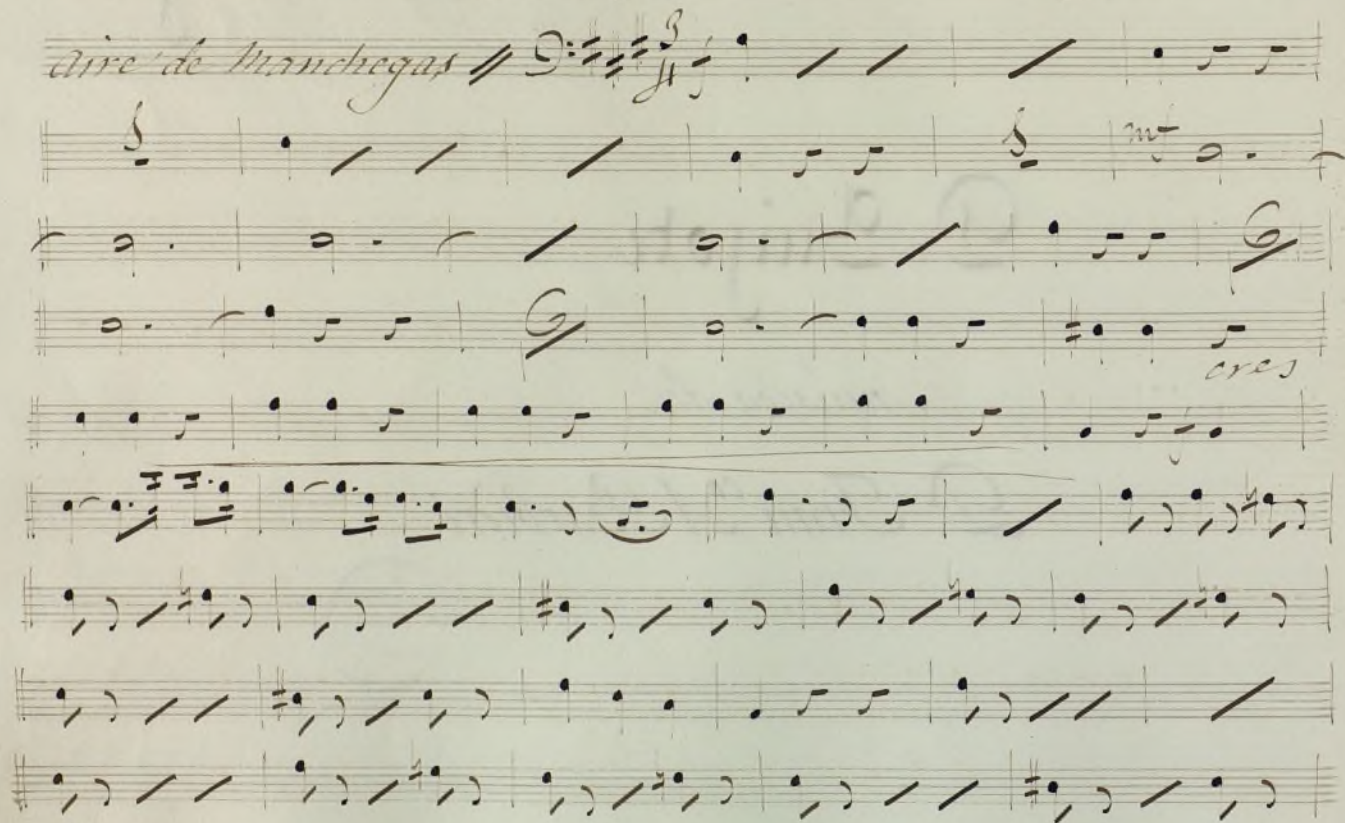 Aire de Manchegas
3
4 f
mf
cres